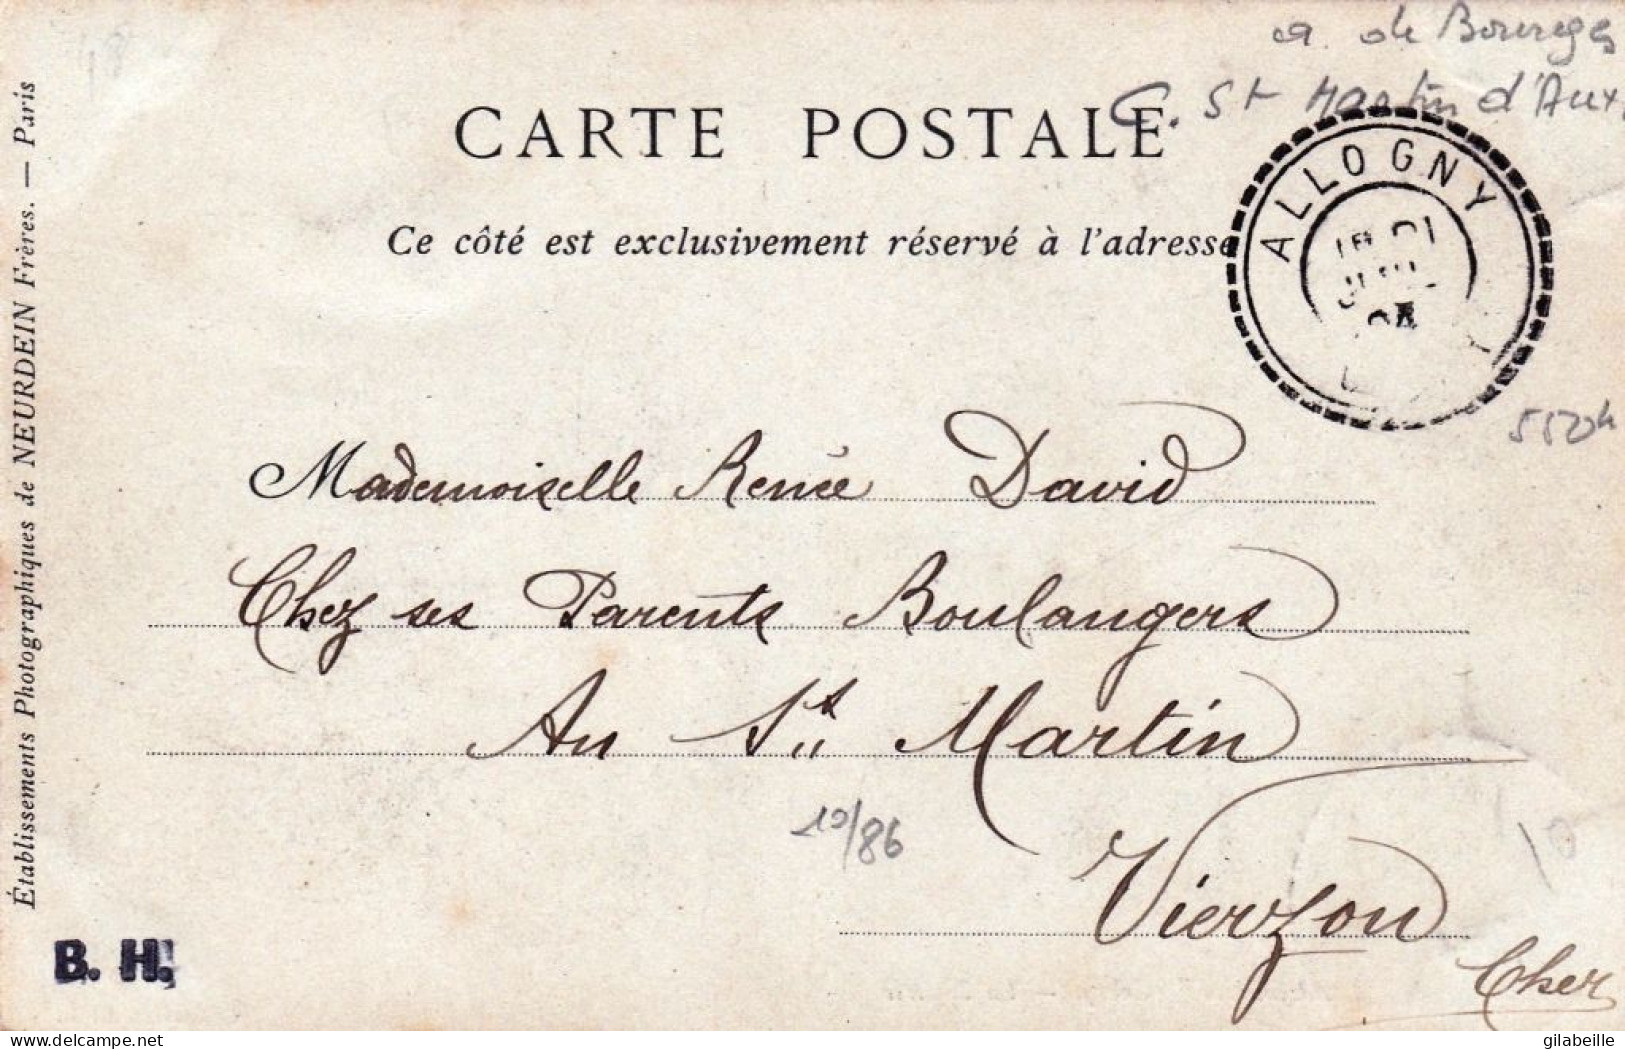 a. de Bourges
C. St Martin d'Aux.
CARTE POSTALE
Ce côté est exclusivement réservé à l'adresse
ALLOGNY
Établissements Photographiques de NEURDEIN Frères. — Paris
Mademoiselle Renée David
Chez ses Parents Boulangers
Au St Martin
10/86
Vierzon
Cher
B. H.
delcampe.net
gilabeille